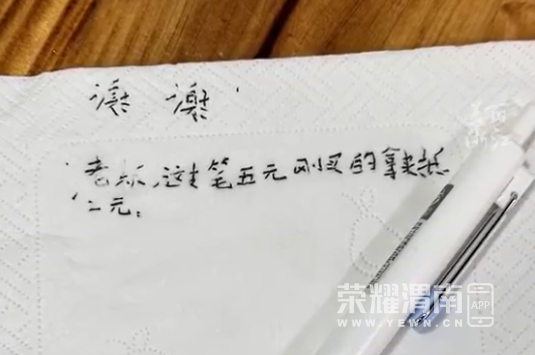 谢 谢
老板,这支笔五元刚买的拿来抵
二元。
美丽
浙江
荣耀渭南 APP
WWW.YEWN.CN